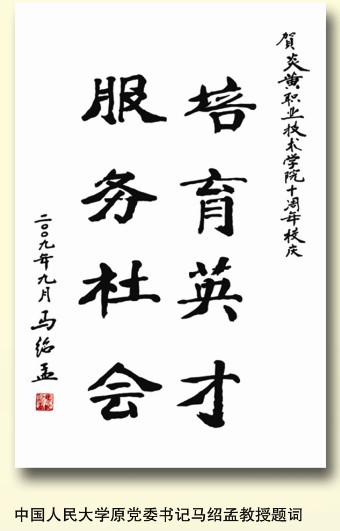 賀炎黄职业技术学院十周年校庆
培育英才
服务社会
二〇〇九年九月 马绍孟
中国人民大学原党委书记马绍孟教授题词